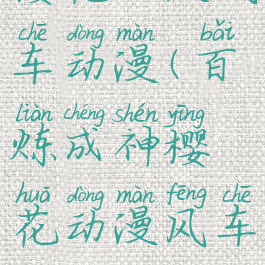 chē dòng màn bǎi
车动漫(百
liàn chéng shén yīng
炼成神樱
huā dòng màn fēng chē
花动漫风车